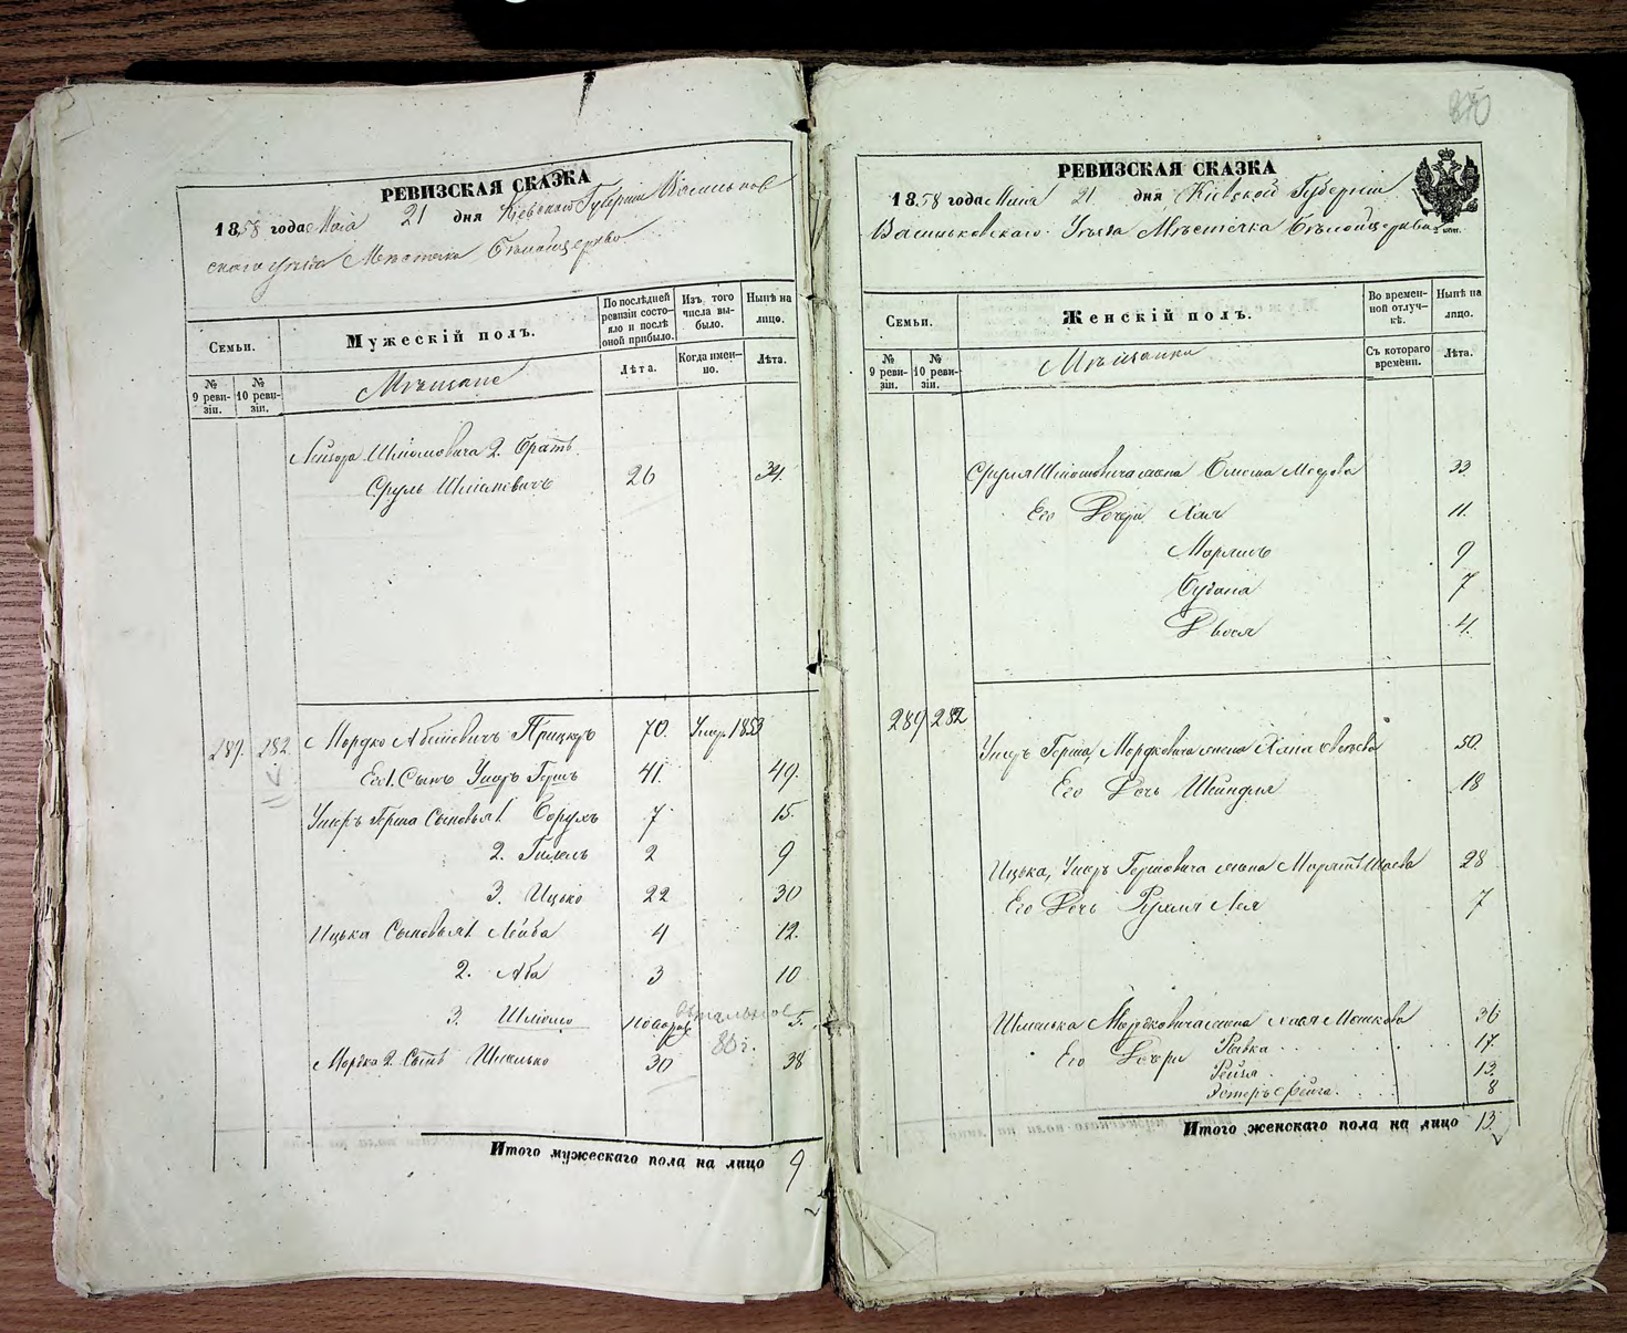 РЕВИЗСКАЯ СКАЗКА
1858 года Маія 21 дня Кіевской Губерніи Васильков
скаго уѣзда Мѣстечка Бѣлойцеркви
Семьи.
Мужескій полъ.
По послѣдней ревизіи состо-
яло и послѣ
оной прибыло.
Изъ того
числа вы-
было.
Нынѣ на
лицо.
№
9 реви-
зіи.
№
10 реви-
зіи.
Мѣщане
Лѣта.
Когда имен-
но.
Лѣта.
Лейзора Шліомовича 2. братъ
Сруль Шліомовичъ 26 34.
289. 282. Мордко Абелiовичъ Прицкеръ 70. Умер. 1853
Его 1. Сынъ Ушеръ Гершъ 41. 49.
Ушеръ Герша Сыновья 1. Борухъ 7 15.
2. Гилель 2 9
3. Ицько 22 30
Ицька Сыновья 1. Лейба 4 12.
2. Аба 3 10
3. Шліомо новорож 5.
Мордка 2. Сынъ Шмилько 30 38
Итого мужескаго пола на лицо 9
270
РЕВИЗСКАЯ СКАЗКА
1858 года Маія 21 дня Кіевской Губерніи
Васильковскаго Уѣзда Мѣстечка Бѣлойцеркви
Семьи.
Женскій полъ.
Во времен-
ной отлуч-
кѣ.
Нынѣ на
лицо.
№
9 реви-
зіи.
№
10 реви-
зіи.
Мѣщанки
Съ котораго
времени.
Лѣта.
Сруля Шліомовича жена 33
Его Дочери Хая 11.
9
7
Двося 4.
289 282
Ушеръ Герша Мордковича жена 50.
Его Дочь Шейндля 18
Ицька, Ушеръ Гершовича жена 28
Его Дочь Рухля Лея 7
Шмилька Мордковича жена Хая Мошкова 36
Его Дочери Ривка 17.
Рейзя 13.
Эстеръ Фейга. 8
Итого женскаго пола на лицо 13